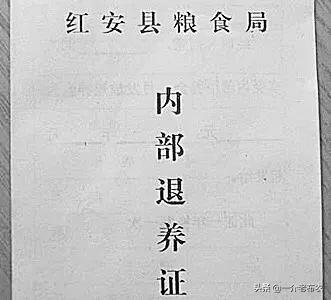 红安县粮食局
内部退养证
头条 @一介老布衣